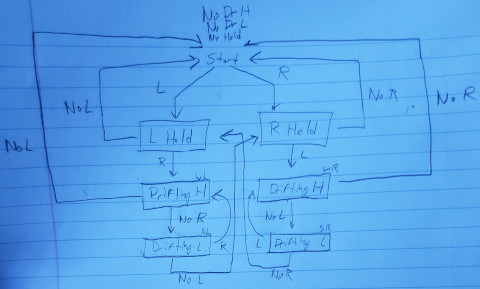 No Dr H
No Dr L
No Hold
Start
L
R
No L
No R
No L
No R
L Hold
R Hold
R
L
Drifting H
Drifting H
No R
No L
Drifting L
R
L
Drifting L
No L
No R